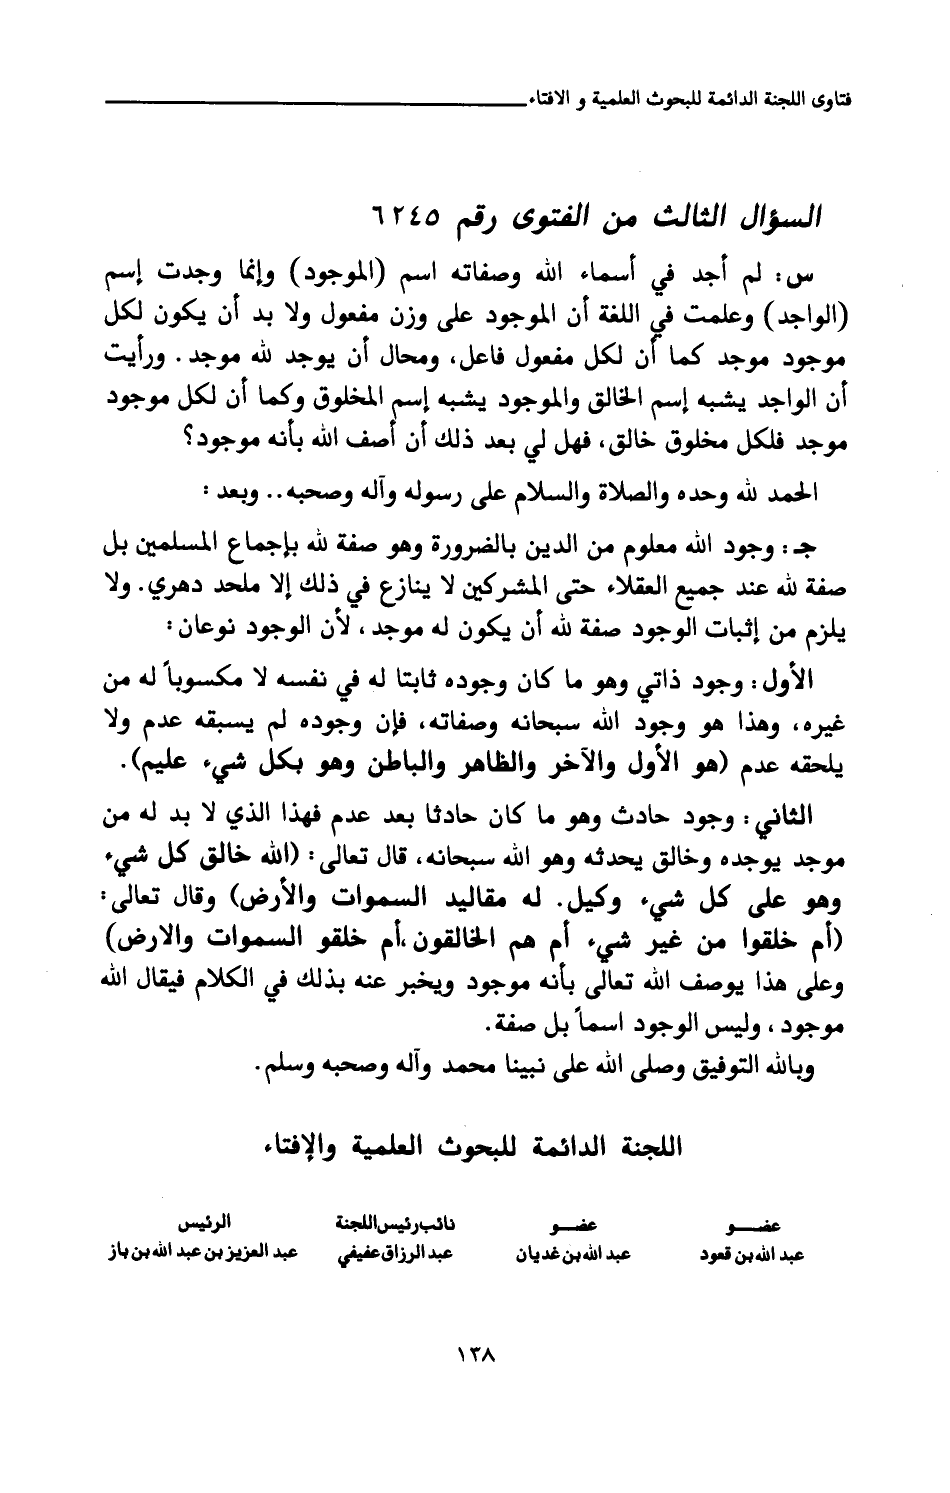 فتاوى اللجنة الدائمة للبحوث العلمية و الافتاء
السؤال الثالث من الفتوى رقم ٦٢٤٥
س: لم أجد في أسماء الله وصفاته اسم (الموجود) وإنما وجدت إسم
(الواجد) وعلمت في اللغة أن الموجود على وزن مفعول ولا بد أن يكون لكل
موجود موجد كما أن لكل مفعول فاعل، ومحال أن يوجد لله موجد. ورأيت
أن الواجد يشبه إسم الخالق والموجود يشبه إسم المخلوق وكما أن لكل موجود
موجد فلكل مخلوق خالق، فهل لي بعد ذلك أن أصف الله بأنه موجود؟
الحمد لله وحده والصلاة والسلام على رسوله وآله وصحبه.. وبعد:
جـ: وجود الله معلوم من الدين بالضرورة وهو صفة لله بإجماع المسلمين بل
صفة لله عند جميع العقلاء حتى المشركين لا ينازع في ذلك إلا ملحد دهري. ولا
يلزم من إثبات الوجود صفة لله أن يكون له موجد، لأن الوجود نوعان:
الأول: وجود ذاتي وهو ما كان وجوده ثابتا له في نفسه لا مكسوباً له من
غيره، وهذا هو وجود الله سبحانه وصفاته، فإن وجوده لم يسبقه عدم ولا
يلحقه عدم (هو الأول والآخر والظاهر والباطن وهو بكل شيء عليم).
الثاني: وجود حادث وهو ما كان حادثا بعد عدم فهذا الذي لا بد له من
موجد يوجده وخالق يحدثه وهو الله سبحانه، قال تعالى: (الله خالق كل شيء
وهو على كل شيء وكيل. له مقاليد السموات والأرض) وقال تعالى:
(أم خلقوا من غير شيء أم هم الخالقون،أم خلقو السموات والارض)
وعلى هذا يوصف الله تعالى بأنه موجود ويخبر عنه بذلك في الكلام فيقال الله
موجود، وليس الوجود اسماً بل صفة.
وبالله التوفيق وصلى الله على نبينا محمد وآله وصحبه وسلم.
اللجنة الدائمة للبحوث العلمية والإفتاء
عضـــو عضـــو نائب رئيس اللجنة الرئيس
عبد الله بن قعود عبد الله بن غديان عبد الرزاق عفيفي عبد العزيز بن عبد الله بن باز
١٣٨